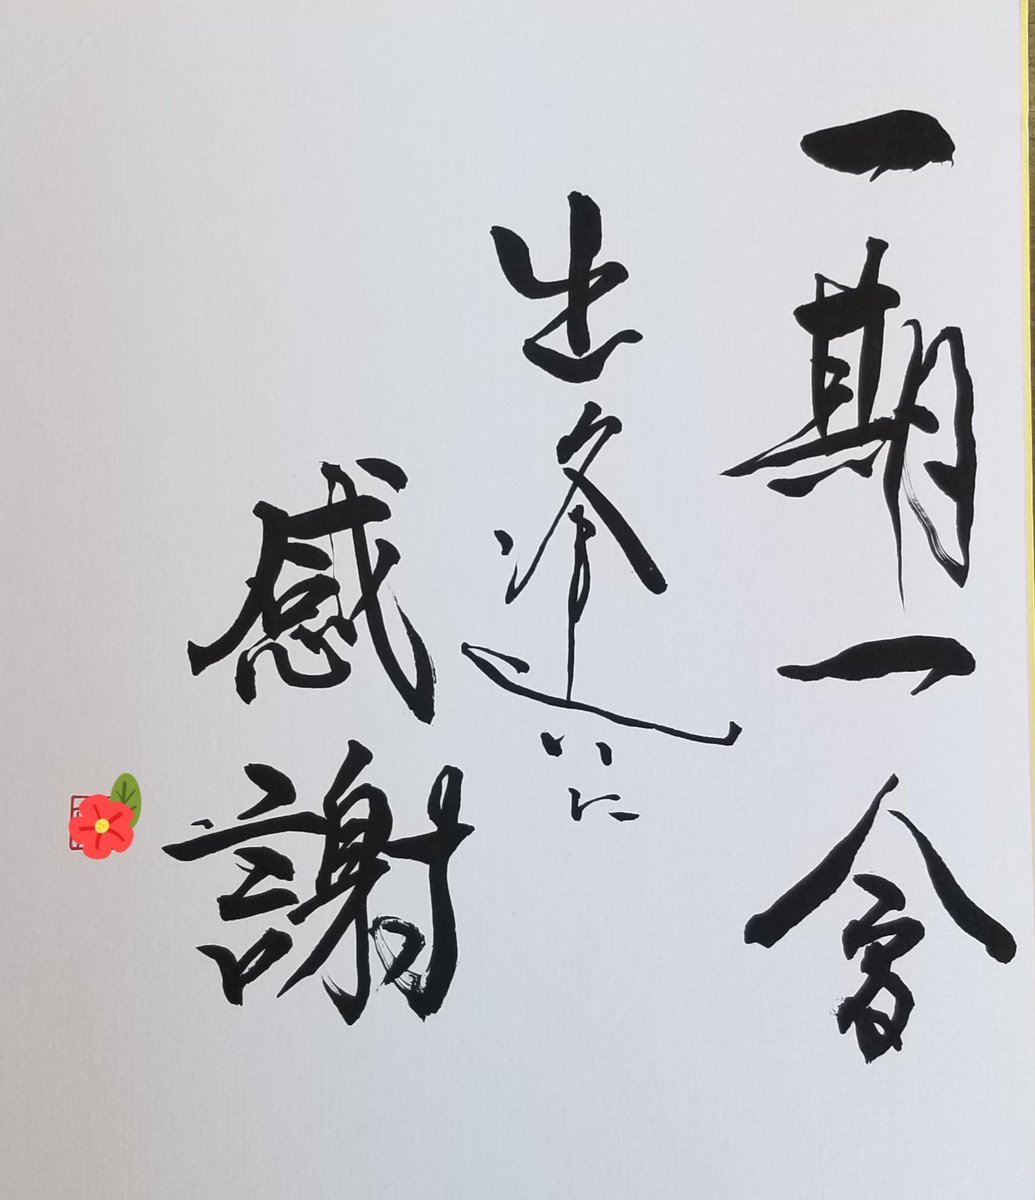 一期一會
出逢いに
感謝